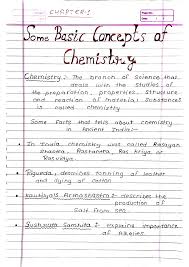 CHAPTER:1
Date:
Some Basic Concepts of
Chemistry
Chemistry :- The branch of science that
deals with the studies of
the preparation, properties, structure
and reaction of material substances
is called chemistry
Some Facts that tells about chemistry
in Ancient India:-
In India, chemistry was called Rasayan
Shastra, Rastantra, Ras Kriya or
Rasvidya
Rigveda : describes tanning of leather
and dying of cotton
Kautilya's Arthasastra :- describes the
production of
Salt from sea.
Sushruta Samhita :- explains importance
of Alkalies.